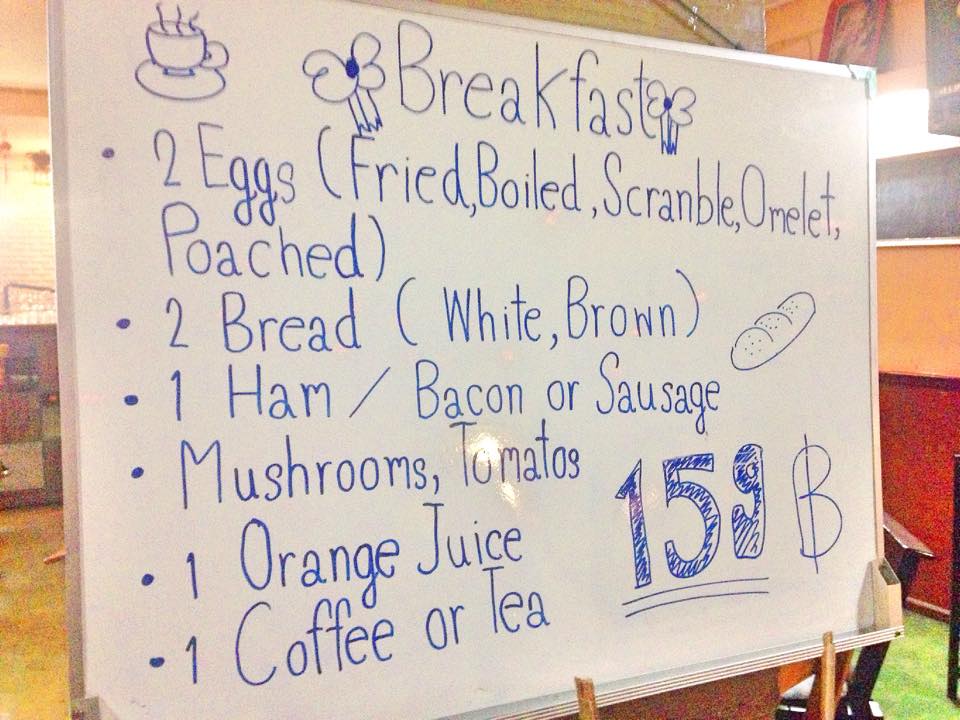 Breakfast
• 2 Eggs (Fried,Boiled,Scranble,Omelet,
Poached)
• 2 Bread (White,Brown)
• 1 Ham / Bacon or Sausage
• Mushrooms, Tomatos
• 1 Orange Juice
• 1 Coffee or Tea
159 ฿